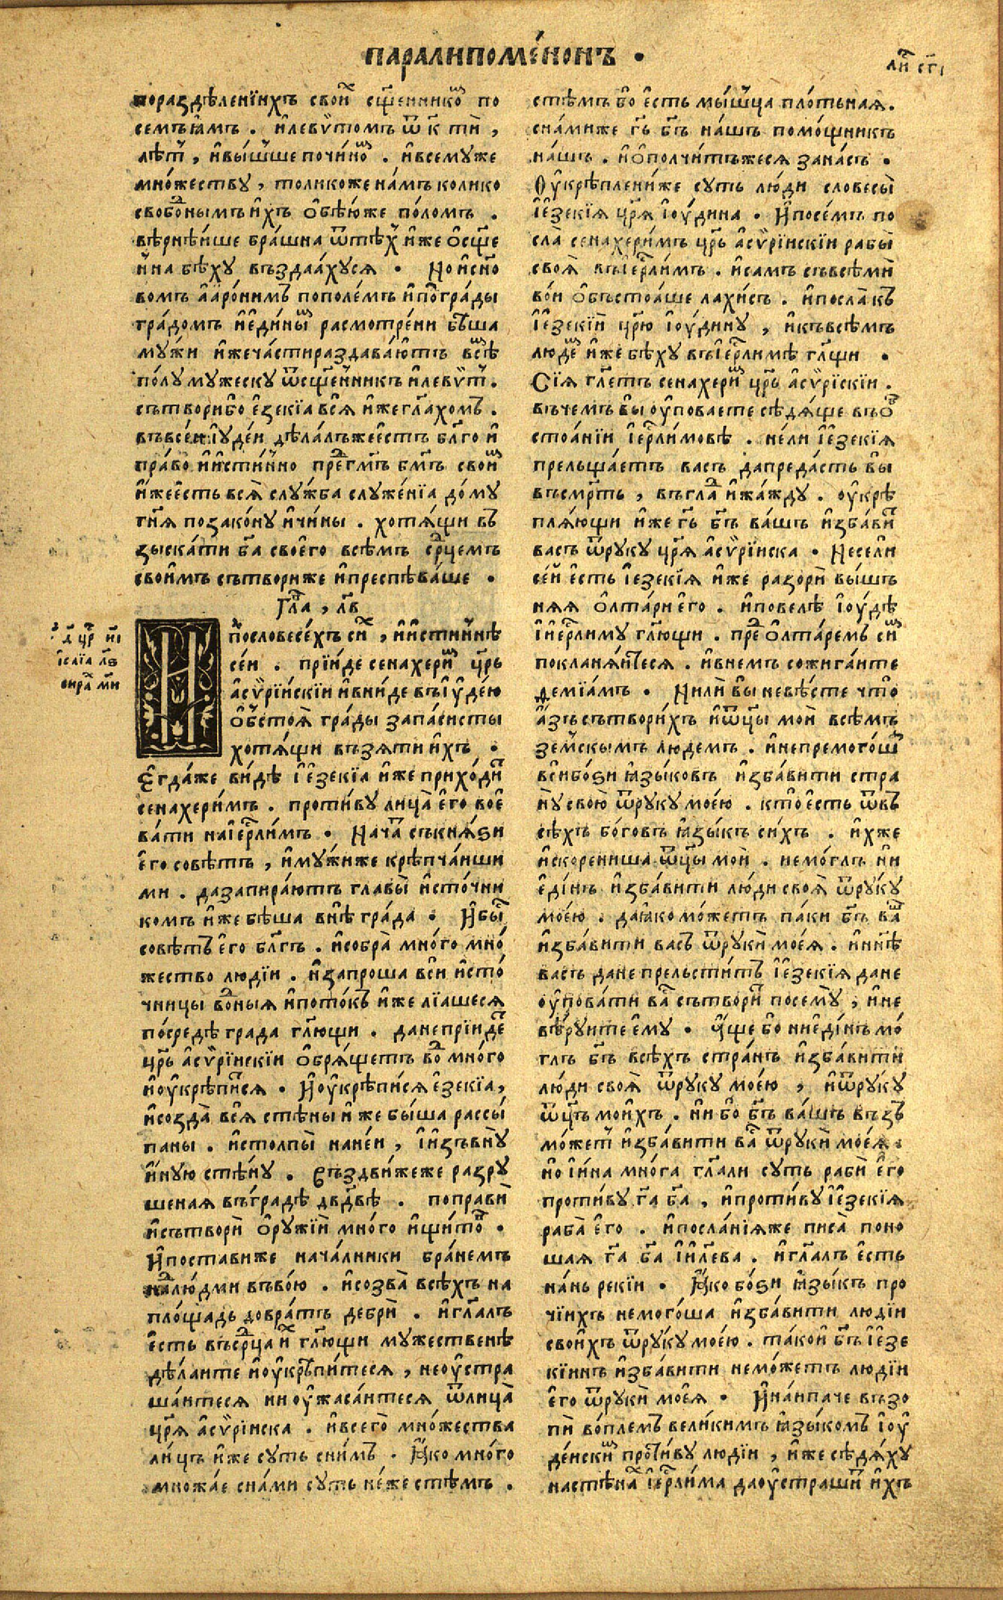 паралипоме́нонъ .
ли́ст сг҃і
пораздѣленїихъ свои́х сщ҃е́нникомъ по
семъꙗ́мъ . и҆леви́томъ ѿ к҃ тѝ ,
лѣ́т , и҆вы́шше почи́номъ . и҆всему́же
мно́жеству , толикоже на́мъ колико
свобо́днымъ и҆́хъ ѻ҆бѣю́же по́ломъ .
вѣ́рнѣише бра́шна ѿтѣ́х и҆́же ѻ҆сщ҃е
и҆на бѣ́ху въздаа́хуся . Но и҆сно́
вомъ а҆аро́нимъ пополе́мъ и҆погра́ды
гра́домъ и҆е҆ди́ны расмотре́ни бы́ша
му́жи и҆́жеча́стираздава́ютъ всѣ̀
по́лу му́жеску ѿсщ҃е́нникъ и҆леви́т .
сътвори́бо е҆зекїа всѧ̀ и҆́жегл҃ахомъ .
въвсе́и і҆уде́и дѣ́лалъжее́стъ бл҃го и҆
пра́во и҆и҆́стинно пред г҃мъ б҃мъ свои́м
и҆́жее́сть всѧ̀ слу́жба служе́нїа до́му
г҃нѧ позако́ну и҆чи́ны . хотѧ́щи въ
зыска́ти б҃а своего̀ всѣ́мъ ср҃цемъ
свои́мъ сътвориже и҆преспѣва́ше .
Гла̀ , л҃в
Ипословесе́хъ си́х , и҆и҆́стиннѣ
се́и . прїи́де сенахери́м цр҃ь
а҆сѵрі́искїи и҆вни́де въі҆у́де́ю
ѻ҆бстоя̀ гра́ды запа́систы
хотѧ́щи възя́ти и҆́хъ .
Е҆гда́же ви́дѣ і҆е҆зекїа и҆́же прихо́дит
сенахери́мъ . проти́ву лица̀ е҆го̀ вое
ва́ти наі҆ер҃ли́мъ . Нача́т съкнѧ́ѕи
е҆го совѣ́тъ , и҆му́жиже крѣпча́иши
ми . дазапира́ютъ главы̀ и҆сто́чни
комъ и҆́же бѣ́ша внѣ̀ гра́да . И҆бы́
совѣ́тъ е҆го бл҃гъ . и҆собра̀ мно́го мно́
жество лю́дїи . и҆запроша всѝ и҆сто́
чницы во́дныѧ и҆пото́къ и҆́же лїа́шеся
по́средѣ гра́да гл҃ющи . данепрїи́дет
цр҃ь а҆сѵрі́искїи ѻ҆бря́щетъ во́д мно́го
и҆оу҆крѣпи́тся . И҆оу҆крѣпи́ся е҆зекїа ,
и҆созда̀ всѧ̀ стѣ́ны и҆́же бы́ша рассы́
паны . и҆столпы̀ нане́и , і҆и҆звъну̀
и҆́ную стѣ́ну . Въздви́жеже разру
ше́ная въгра́дѣ дв҃двѣ . поправѝ
и҆сътворѝ ѻ҆ру́жїи мно́го и҆щито́в .
И҆поста́виже нача́лники бра́немъ
надлю́дми въво́ю . и҆созва̀ всѣ́хъ на
пло́щадь до вра́тъ дебрѝ . и҆гл҃алъ
е҆сть въср҃ца и́х гл҃ющи му́жественѣ
дѣ́лаите и҆оу҆крѣпи́теся , неоу҆стра
ша́итеся ни оу҆жаса́итеся ѿлица̀
цр҃я а҆сѵрі́иска . и҆всего̀ мно́жества
ли́цъ и҆́же суть сни́мъ . Ꙗ҆́ко мно́го
мно́жае сна́ми суть не́же стѣ́мъ .
стѣ́мъ бо е҆́сть мы́шца пло́тьная .
сна́миже г҃ь б҃ъ на́шъ помо́щникъ
на́шъ . и҆ѻ҆полчи́тъжеся зана́съ .
Оу҆крѣпле́ниже суть лю́ди словесы̀
і҆е҆зекїѧ цр҃ѧ і҆оу́дина . И҆посе́мъ по
сла̀ сенахери́мъ цр҃ь а҆сѵрі́искїи рабы̀
своѧ̀ въі҆ер҃ли́мъ . и҆са́мъ съвсѣ́ми
во́и ѻ҆бъстоа́ше лахи́съ . и҆посла̀ къ
і҆е҆зекі́и цр҃ю і҆оу́дину , и҆къвсѣ́мъ
лю́дем и҆́же бѣ́ху въі҆ер҃ли́мѣ гл҃щи .
Сїѧ гл҃етъ сенахери́м цр҃ь а҆сѵрі́скїи .
въче́мъ вы̀ оу҆пова́ете сѣдѧ́ще въѻ҆б
стоа́нїи і҆ер҃ли́мовѣ . не́ли і҆е҆зекїѧ
прельща́етъ ва́съ да преда́сть вы̀
въсм҃рть , въгла́д и҆жа́жду . оу҆крѣ
плѧ́ющи и҆́же г҃ь б҃ъ ва́шъ и҆зба́вит
ва́съ ѿ руку цр҃ѧ а҆сѵрі́иска . Несе́ли
се́й е҆́сть і҆е҆зекїѧ и҆́же разорѝ вы́шъ
няя ѻ҆лтари е҆го̀ . и҆повелѣ̀ і҆оу́дѣ
і҆і҆ер҃ли́му гл҃ющи . пред ѻ҆лтаре́мъ си́м
покланя́итеся . и҆вне́мъ сожига́ите
демїа́мъ . Нилѝ вы̀ невѣ́сте что̀
а҆́зъ сътвори́хъ и҆ѿц҃ы моѝ всѣ́мъ
зе́мскымъ лю́демъ . и҆непремого́ша
всѝбо́ѕи ꙗ҆зы́ковъ и҆зба́вити стра
ну̀ свою̀ ѿ руку мое́ю . кто̀ е҆сть ѿ въ
сѣ́хъ бо́говъ ꙗ҆зы́къ си́хъ . и҆́хже
и҆скорени́ша ѿц҃ы моѝ . немо́глъ ни
е҆ди́нъ и҆зба́вити лю́ди своѧ̀ ѿ руку
мое́ю . даꙗ҆́ко мо́жетъ па́ки б҃ъ ва́ш
и҆зба́вити ва́съ ѿ рукѝ моеѧ̀ . и҆нн҃ѣ
ва́съ да непрельсти́тъ і҆е҆зекїѧ да не
оу҆пова́ти ва́с сътвори́т посему̀ , и҆не
вѣ́руите е҆му̀ . А҆́ще бо ние҆ди́нъ мо́
глъ б҃ъ всѣ́хъ стра́нъ и҆зба́вити
лю́ди своѧ̀ ѿ руку мое́ю , и҆ѿ руку
ѿц҃ъ мои́хъ . ни бо б҃ъ ва́шъ възъ
мо́жет и҆зба́вити ва́с ѿ рукѝ моеѧ̀ .
но і҆и́на мно́га гл҃али суть рабѝ е҆го̀
проти́ву г҃а б҃а , и҆проти́ву і҆е҆зекїѧ
раба̀ е҆го̀ . и҆посла́нїяже писа̀ поно
шая г҃а б҃а і҆и҃лева . и҆гл҃алъ е҆сть
на́нь рекїи . Ꙗ҆́ко бо́ѕи ꙗ҆зы́къ про
чїихъ немого́ша и҆зба́вити лю́дїи
свои́хъ ѿ руку мое́ю . та́кои б҃ъ і҆е҆зе
кїинъ и҆зба́вити немо́жетъ лю́дїи
е҆го̀ ѿ рукѝ моеѧ̀ . И҆наипаче възо
пѝ во́племъ вели́кимъ ꙗ҆зы́комъ і҆оу
де́иским проти́ву лю́дїи , и҆́же сѣдѧ́ху
настѣ́нах і҆ер҃ли́ма даоу҆страши́т и҆́хъ